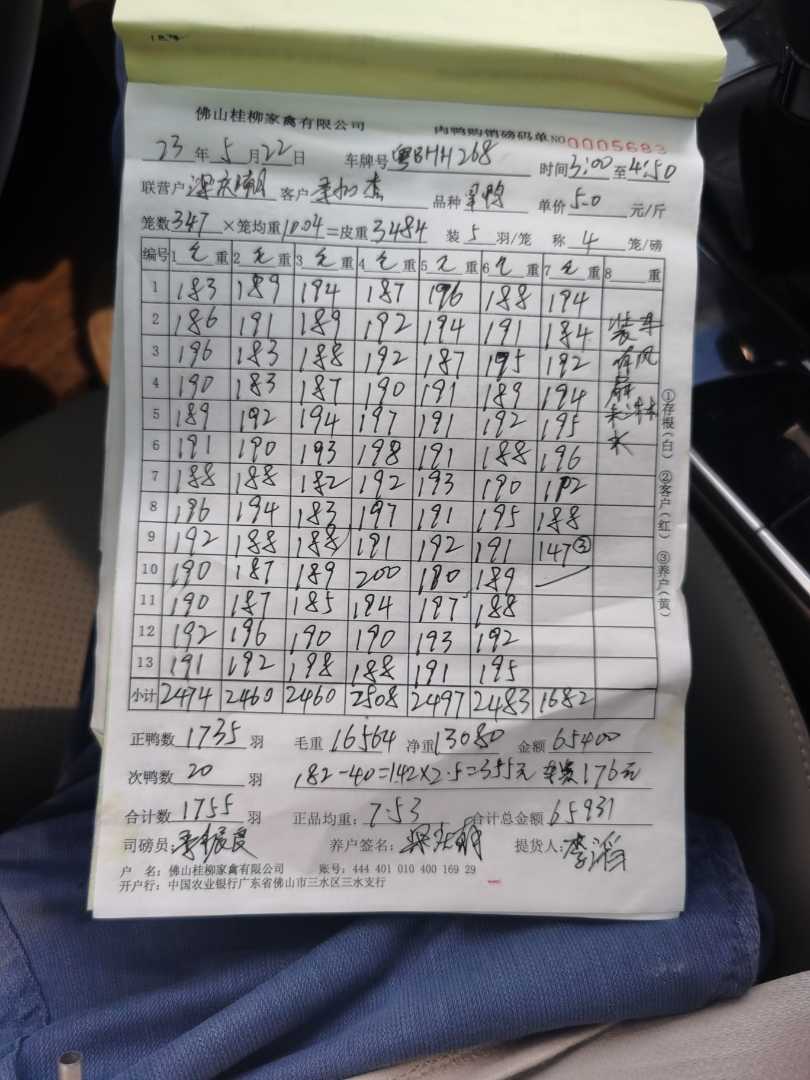 佛山桂柳家禽有限公司 肉鸭购销磅码单 NO 0005683
23 年 5 月 22 日 车牌号 粤BHH268 时间 3:00 至 4:50
联营户 客户 品种 单价 5.0 元/斤
笼数 347 ×笼均重 10.04 =皮重 3484 装 5 羽/笼 称 4 笼/磅
编号 1 毛 重 2 毛 重 3 毛 重 4 毛 重 5 毛 重 6 毛 重 7 毛 重 8 重
1 183 189 194 187 196 188 194
2 186 191 189 192 194 191 184 装车
3 196 183 188 192 187 195 192 有风
4 190 183 187 190 191 189 194
5 189 192 194 197 191 192 195
6 191 190 193 198 191 188 196
7 188 188 182 192 193 190 192
8 196 194 183 197 191 195 188
9 192 188 188 191 192 191 147③
10 190 187 189 200 190 189
11 190 187 185 194 197 188
12 192 196 190 190 193 192
13 191 192 198 188 191 195
小计 2474 2460 2460 2508 2497 2483 1682
正鸭数 1735 羽 毛重 16564 净重 13080 金额 65400
次鸭数 20 羽 182-40=142×2.5=355元 车费176元
合计数 1755 羽 正品均重: 7.53 合计总金额 65931
司磅员: 李振良 养户签名: 提货人: 李滔
户 名: 佛山桂柳家禽有限公司 账号: 444 401 010 400 169 29
开户行: 中国农业银行广东省佛山市三水区三水支行
①存根(白) ②客户(红) ③养户(黄)